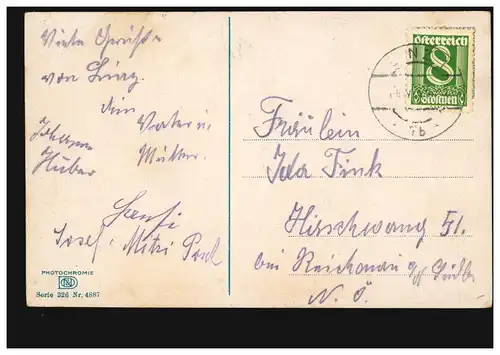 Viele Grüße
von Linz.
dein
Vater u.
Mutter.
Johann
Huber
Hansi
Josef Mitzi
PHOTOCHROMIE
Serie 226 Nr. 4887
Österreich
8
Groschen
Fräulein
Ida Fink
Hirschwang 51.
bei Reichenau
N. Ö.